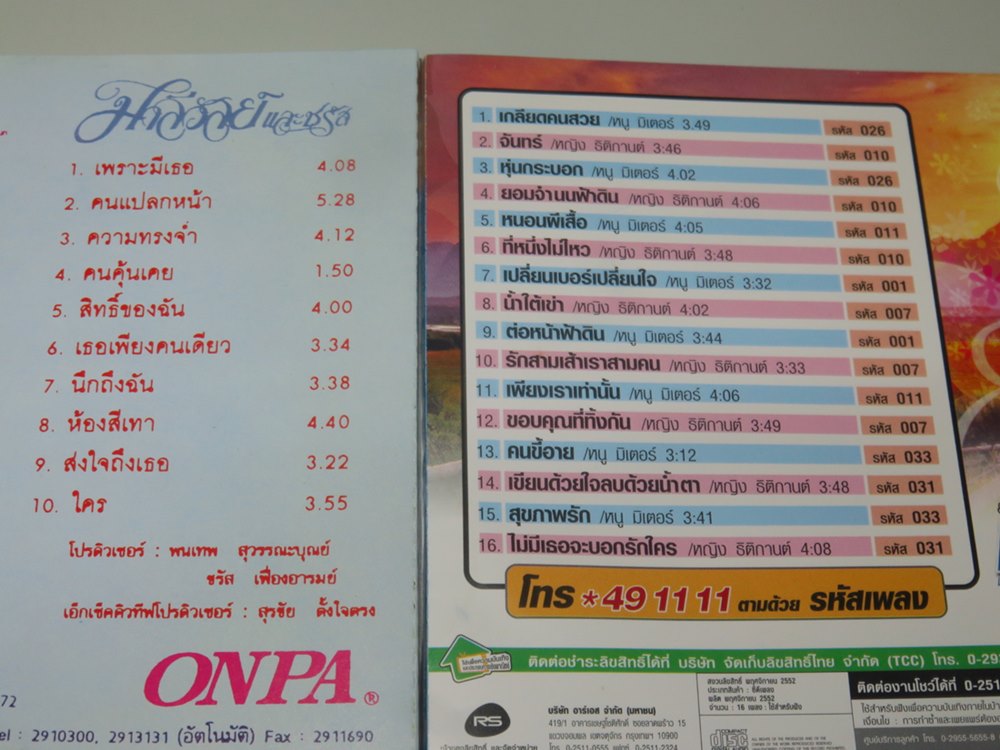 มาลีวัลย์และชรัส
1. เพราะมีเธอ 4.08
2. คนแปลกหน้า 5.28
3. ความทรงจำ 4.12
4. คนคุ้นเคย 1.50
5. สิทธิ์ของฉัน 4.00
6. เธอเพียงคนเดียว 3.34
7. นึกถึงฉัน 3.38
8. ห้องสีเทา 4.40
9. ส่งใจถึงเธอ 3.22
10. ใคร 3.55
โปรดิวเซอร์ : พนเทพ สุวรรณะบุณย์
ชรัส เฟื่องอารมย์
เอ็กเซ็คคิวทีฟโปรดิวเซอร์ : สุรชัย ตั้งใจตรง
ONPA®
72
el : 2910300, 2913131 (อัตโนมัติ) Fax : 2911690
1. เกลียดคนสวย /หนู มิเตอร์ 3.49 รหัส 026
2. จันทร์ /หญิง ธิติกานต์ 3:46 รหัส 010
3. หุ่นกระบอก /หนู มิเตอร์ 4.02 รหัส 026
4. ยอมจำนนฟ้าดิน /หญิง ธิติกานต์ 4:06 รหัส 010
5. หนอนผีเสื้อ /หนู มิเตอร์ 4:05 รหัส 011
6. ที่หนึ่งไม่ไหว /หญิง ธิติกานต์ 3:48 รหัส 010
7. เปลี่ยนเบอร์เปลี่ยนใจ /หนู มิเตอร์ 3:32 รหัส 001
8. น้ำใต้เข่า /หญิง ธิติกานต์ 4:02 รหัส 007
9. ต่อหน้าฟ้าดิน /หนู มิเตอร์ 3:44 รหัส 001
10. รักสามเส้าเราสามคน /หญิง ธิติกานต์ 3:33 รหัส 007
11. เพียงเราเท่านั้น /หนู มิเตอร์ 4:06 รหัส 011
12. ขอบคุณที่ทิ้งกัน /หญิง ธิติกานต์ 3:49 รหัส 007
13. คนขี้อาย /หนู มิเตอร์ 3:12 รหัส 033
14. เขียนด้วยใจลบด้วยน้ำตา /หญิง ธิติกานต์ 3:48 รหัส 031
15. สุขภาพรัก /หนู มิเตอร์ 3:41 รหัส 033
16. ไม่มีเธอจะบอกรักใคร /หญิง ธิติกานต์ 4:08 รหัส 031
โทร *49 11 11 ตามด้วย รหัสเพลง
ติดต่อชำระลิขสิทธิ์ได้ที่ บริษัท จัดเก็บลิขสิทธิ์ไทย จำกัด (TCC) โทร. 0-29
สงวนลิขสิทธิ์ พฤศจิกายน 2552
ประเภทสินค้า : ซีดีเพลง
ผลิต พฤศจิกายน 2552
จำนวน : 16 เพลง : ใช้สำหรับฟัง
RS
บริษัท อาร์เอส จำกัด (มหาชน)
419/1 อาคารเชษฐโชติศักดิ์ ซอยลาดพร้าว 15
แขวงจอมพล เขตจตุจักร กรุงเทพฯ 10900
โทร. 0-2511-0555 แฟกซ์ 0-2511-2324
COMPACT
disc
ติดต่องานโชว์ได้ที่ 0-2511
ใช้สำหรับฟังเพื่อความบันเทิงภายในบ้า
เงื่อนไข : การทำซ้ำและเผยแพร่ต้อง
ศูนย์บริการลูกค้า โทร. 0-2955-5655-8